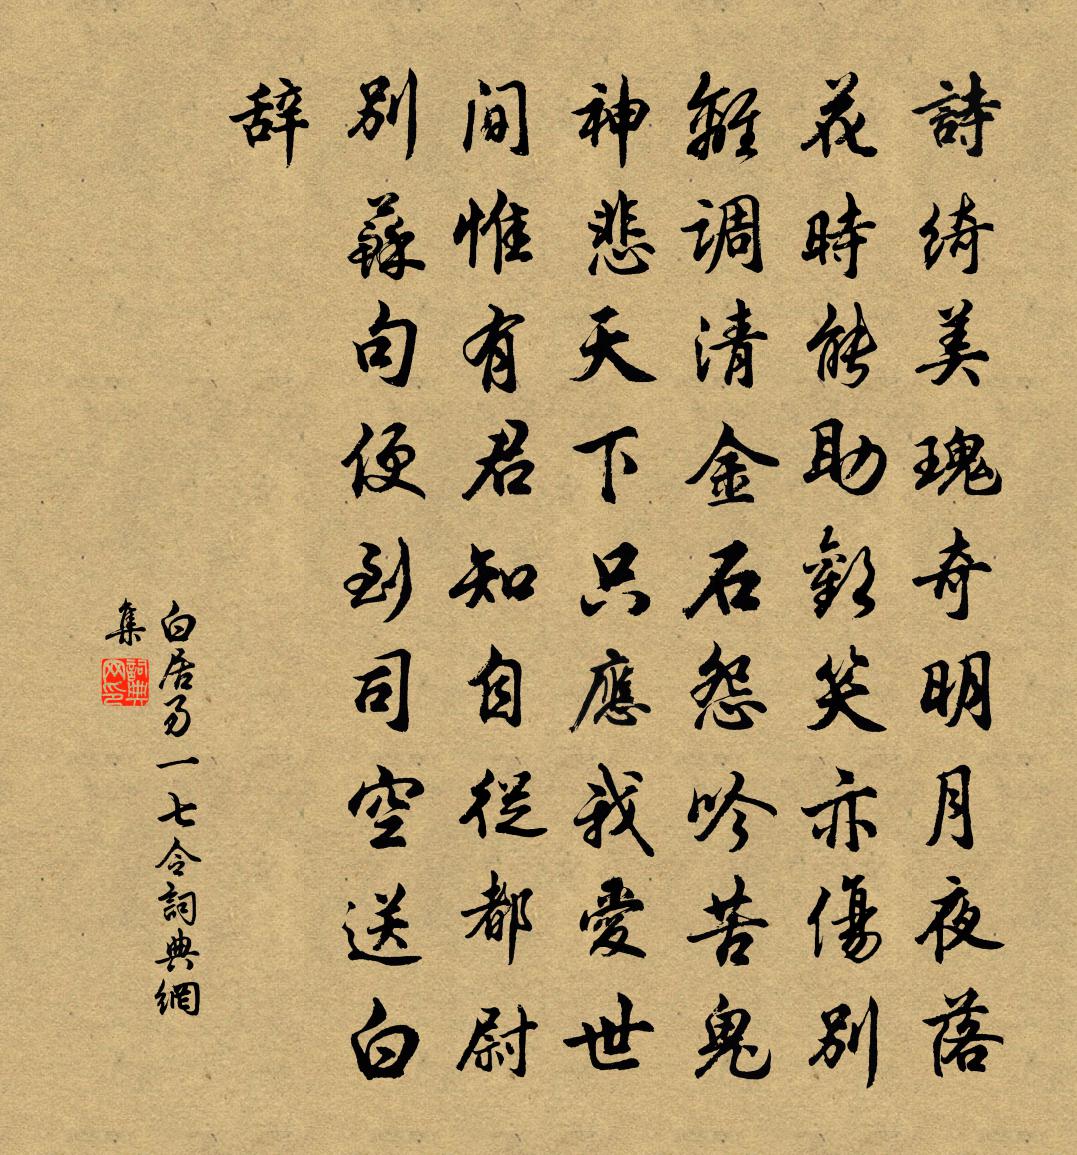 詩綺美瑰奇明月夜落
花時能助歡笑亦傷別
離調清金石怨吟苦鬼
神悲天下只應我愛世
間惟有君知自從都尉
別蘇句便到司空送白
辞
白居易一七令詞典網
集
詞典
网印